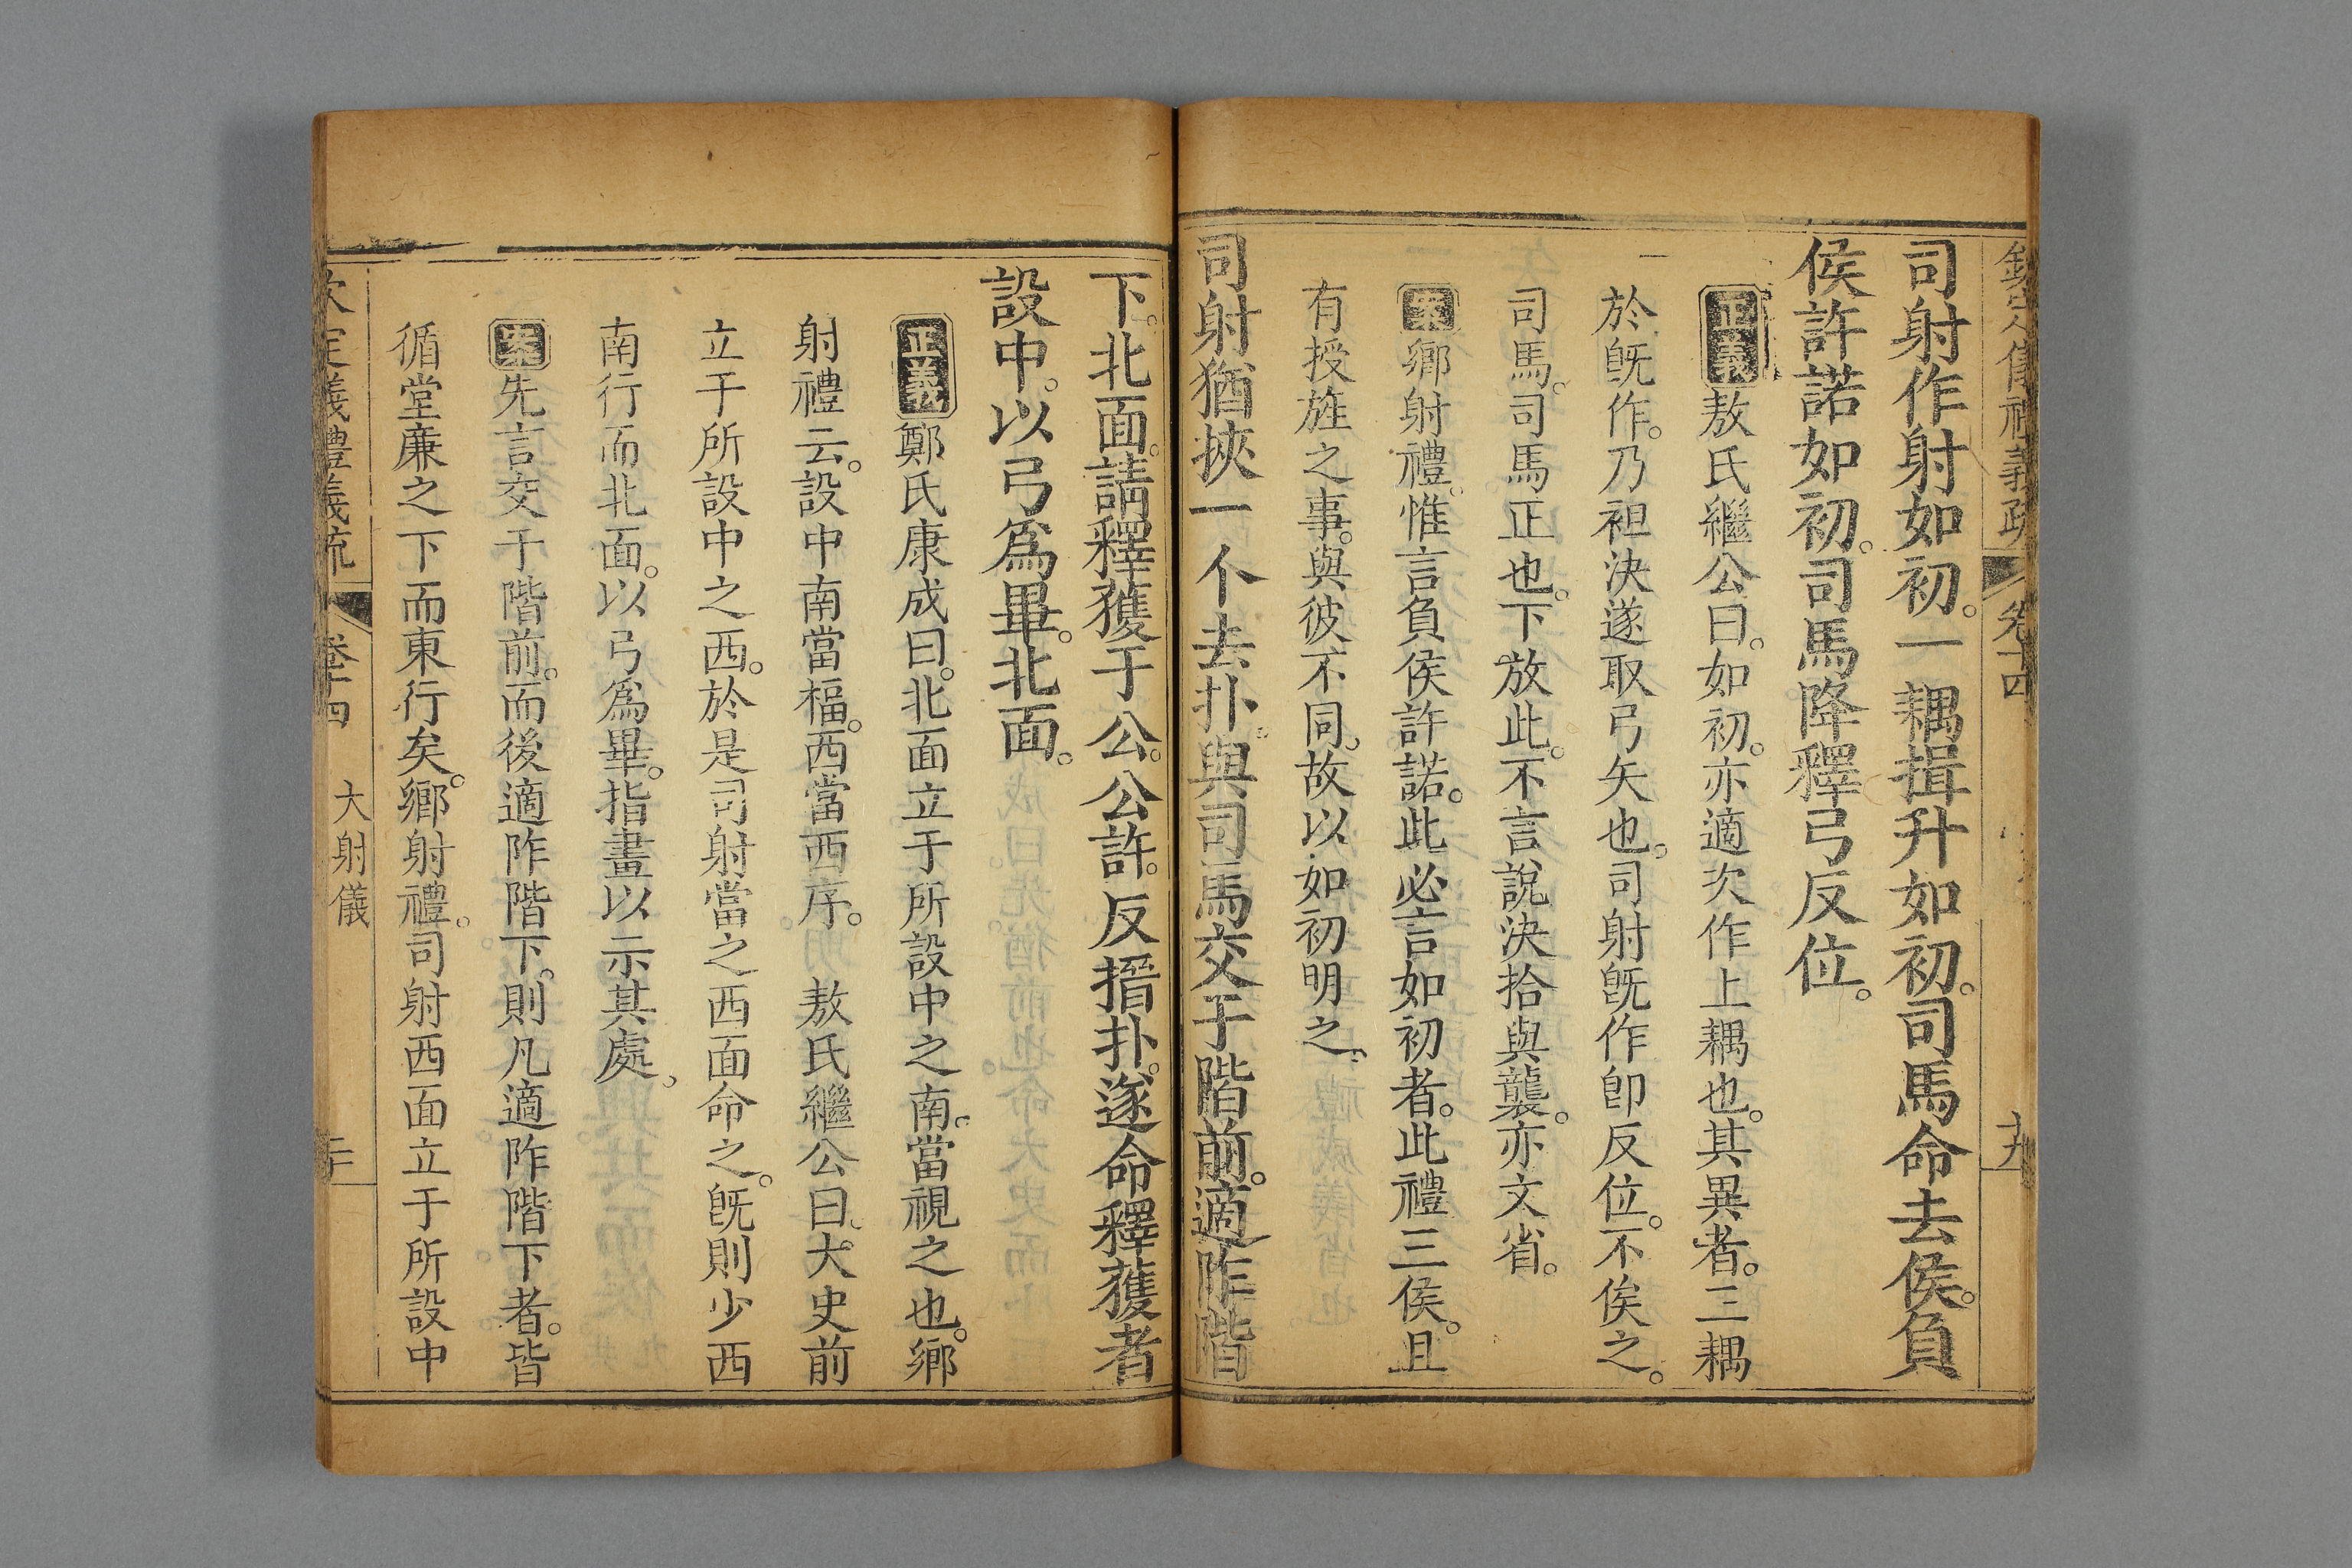 欽定儀禮義疏 卷十四 十九
司射作射如初。一耦揖升如初。司馬命去侯。負
侯許諾如初。司馬降釋弓反位。
正義敖氏繼公曰。如初。亦適次作上耦也。其異者。三耦
於旣作。乃袒決遂取弓矢也。司射旣作卽反位。不俟之。
司馬。司馬正也。下放此。不言說決拾與襲。亦文省。
案鄉射禮。惟言負侯許諾。此必言如初者。此禮三侯。且
有授旌之事。與彼不同。故以如初明之。
司射猶挾一个去扑。與司馬交于階前。適阼階
下。北面。請釋獲于公。公許。反搢扑。遂命釋獲者
設中。以弓爲畢。北面。
正義鄭氏康成曰。北面立于所設中之南。當視之也。鄉
射禮云。設中南當楅。西當西序。 敖氏繼公曰。大史前
立于所設中之西。於是司射當之西面命之。旣則少西
南行而北面。以弓爲畢。指畫以示其處。
案先言交于階前。而後適阼階下。則凡適阼階下者。皆
循堂廉之下而東行矣。鄉射禮。司射西面立于所設中
欽定儀禮義疏 卷十四 大射儀 二十